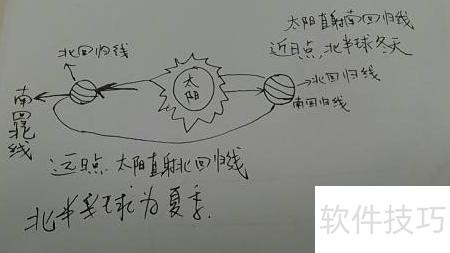 太阳直射南回归线
近日点,北半球冬天
北回归线
南回归线
太阳
北回归线
南回归线
远日点 太阳直射北回归线
北半球为夏季.
软件技巧